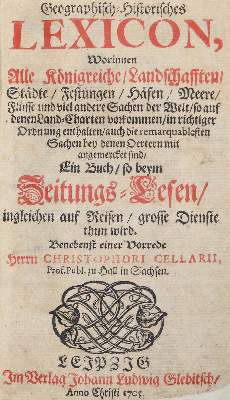 Geographisch-Historisches
LEXICON,
Worinnen
Alle Königreiche/Landschafften/
Städte / Festungen / Häfen / Meere/
Flüsse und viel andere Sachen der Welt/so auf
denen Land-Charten vorkommen/in richtiger
Ordnung enthalten/auch die remarquablesten
Sachen bey denen Oertern mit
angemercket sind/
Ein Buch/ so beym
Zeitungs-Lesen/
ingleichen auf Reisen/ grosse Dienste
thun wird.
Benebenst einer Vorrede
Herrn CHRISTOPHORI CELLARII,
Prof. Publ. zu Hall in Sachsen.
LEIPZIG
Im Verlag Johann Ludwig Gleditsch/
Anno Christi 1705.